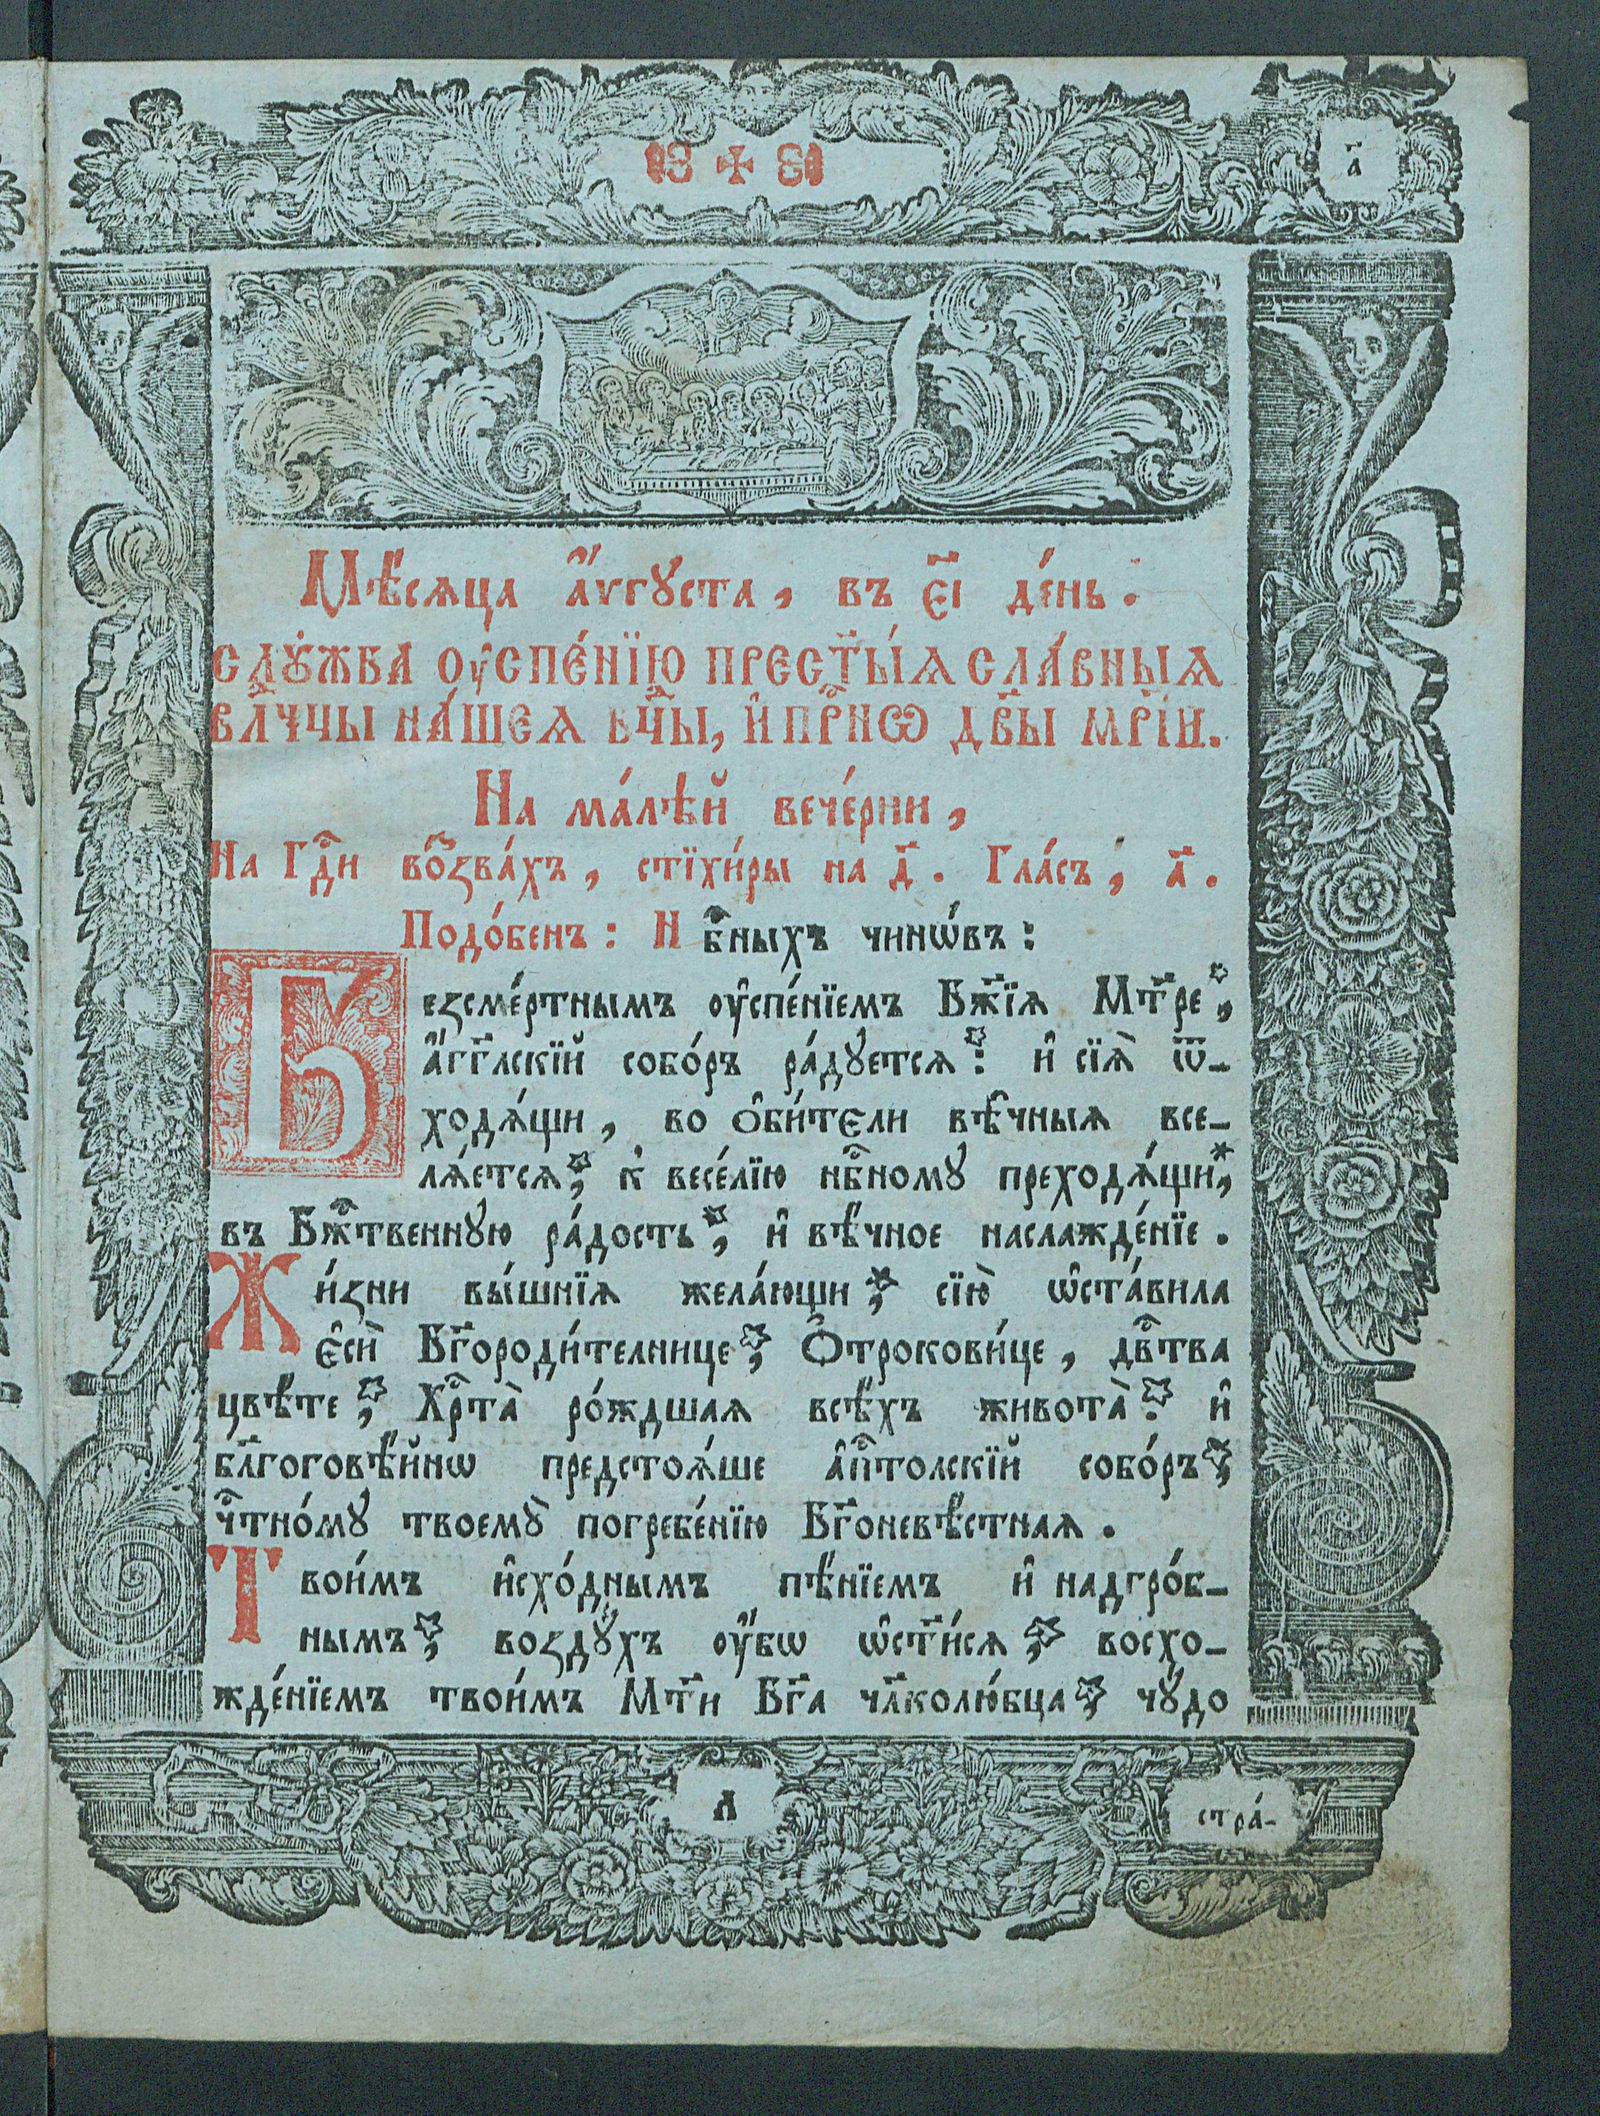 г҃
Мѣ́сѧца а҆́ѵгꙋста, въ є҃і де́нь.
СЛꙊ́ЖБА Ѹ҆СПЕ́НЇЮ ПРЕСТ҃Ы́Ѧ СЛА́ВНЫѦ
ВЛⷣЧЦЫ НА́ШЕѦ БЦⷣЫ, И҆ ПРⷭ҇НѠ ДВ҃Ы МР҃І́И.
На ма́лѣй вече́рни,
На Гдⷭ҇и во́ззва́хъ, стїхи́ры на д҃. Гла́съ, а҃.
Подо́бенъ: Нбⷭ҇ныхъ чинѡ́въ:
Безсме́ртнымъ ѹ҆спе́нїемъ Бж҃їѧ Мт҃ре*,
а҆́гг҃лскїй собо́ръ ра́дꙋетсѧ*: и҆ сїѧ̀ ѿ-
ходѧ́щи, во ѻ҆би́тєли вѣ̑чныѧ все-
лѧ́етсѧ*, к̾ весе́лїю нбⷭ҇номꙋ преходѧ́щи*,
въ Бжⷭ҇твеннꙋю ра́дость*, и҆ вѣ́чное наслажде́нїе.
Жи́зни вы́шнїѧ жела́ющи*, сїю̀ ѡ҆ста́вила
є҆сѝ Бг҃ороди́телнице*, Ѻ҆трокови́це, двⷭ҇тва
цвѣ́те*, Хрⷭ҇та̀ ро́ждшаѧ всѣ́хъ живота̀*: и҆
бл҃гоговѣ́йнѡ предстоѧ́ше а҆пⷭ҇толскїй собо́ръ*,
чⷭ҇тно́мꙋ твоемꙋ̀ погребе́нїю Бг҃оневѣ́стнаѧ.
Твои́мъ и҆схо́днымъ пѣ́нїемъ и҆ надгро́б-
нымъ*, воздꙋ́хъ ѹ҆́бѡ ѡ҆ст҃и́сѧ*, восхо-
жде́нїемъ твои́мъ Мт҃и Бг҃а чл҃колю́бца*, чꙋ́до
А
стра́-